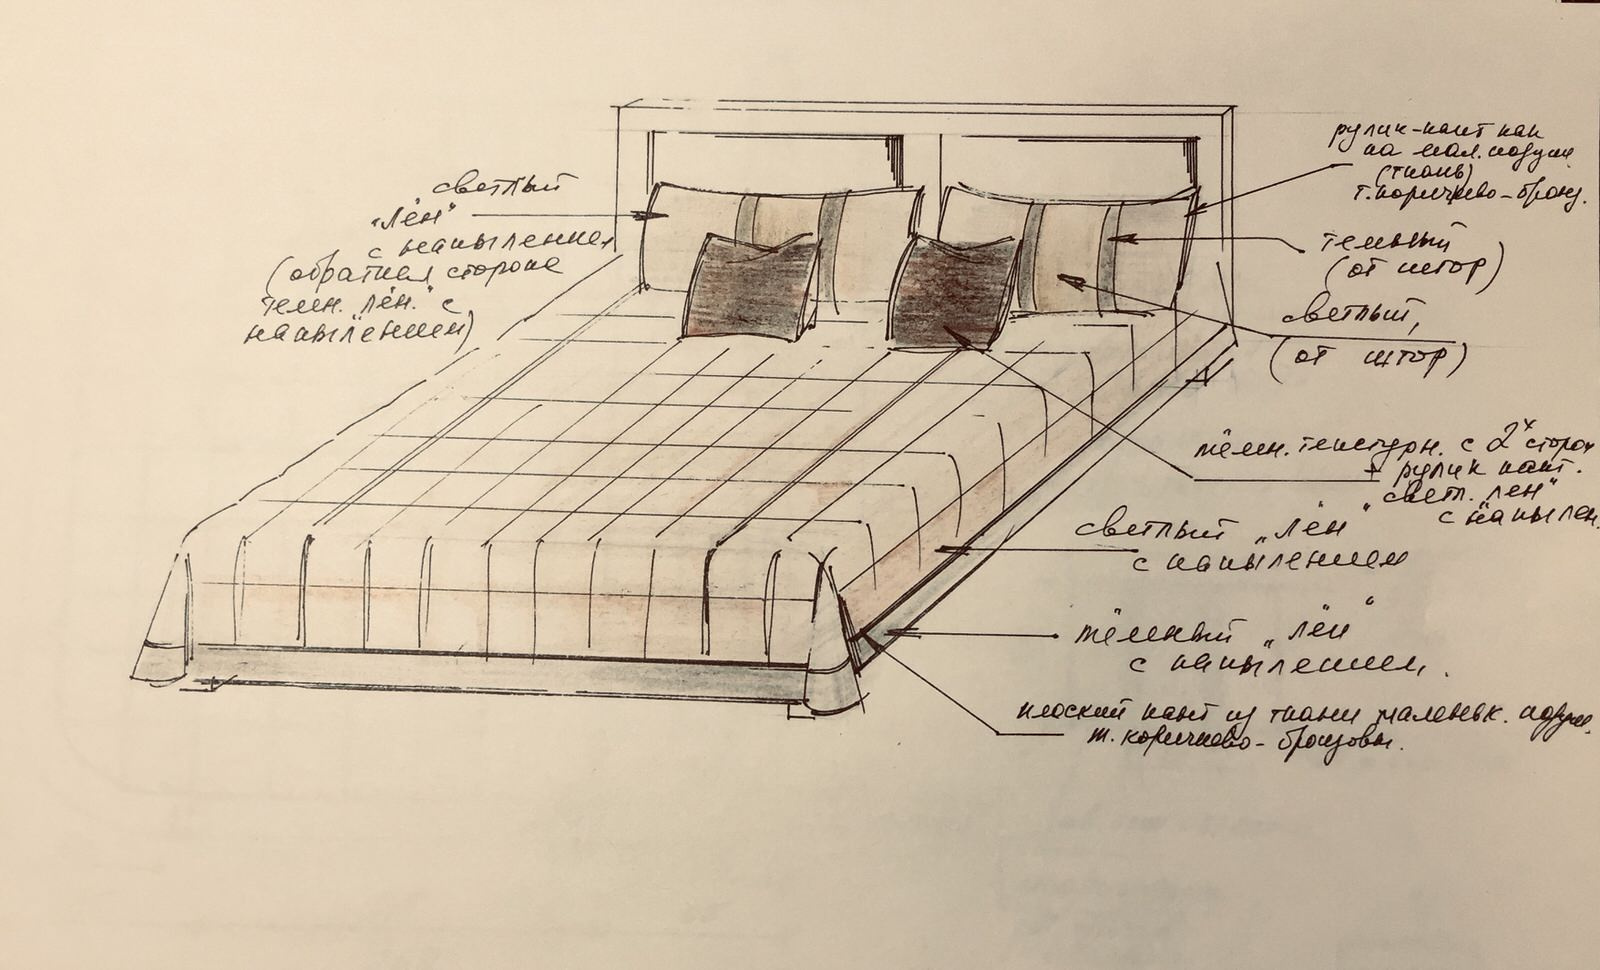 светлый
"лён"
с напылением
(обратная сторона
темн. лён." с
напылением)
рулик-кант как
на мал. подушк.
(ткань)
т. коричнево-бронз.
темный
(от штор)
светлый,
(от штор)
тёмн. текстурн. с 2х сторон
+ рулик кант.
"светл. лён"
с напылен.
светлый "лён"
с напылением
тёмный "лён"
с напылением.
плоский кант из ткани маленьк. подушк.
т. коричнево-бронзовы.